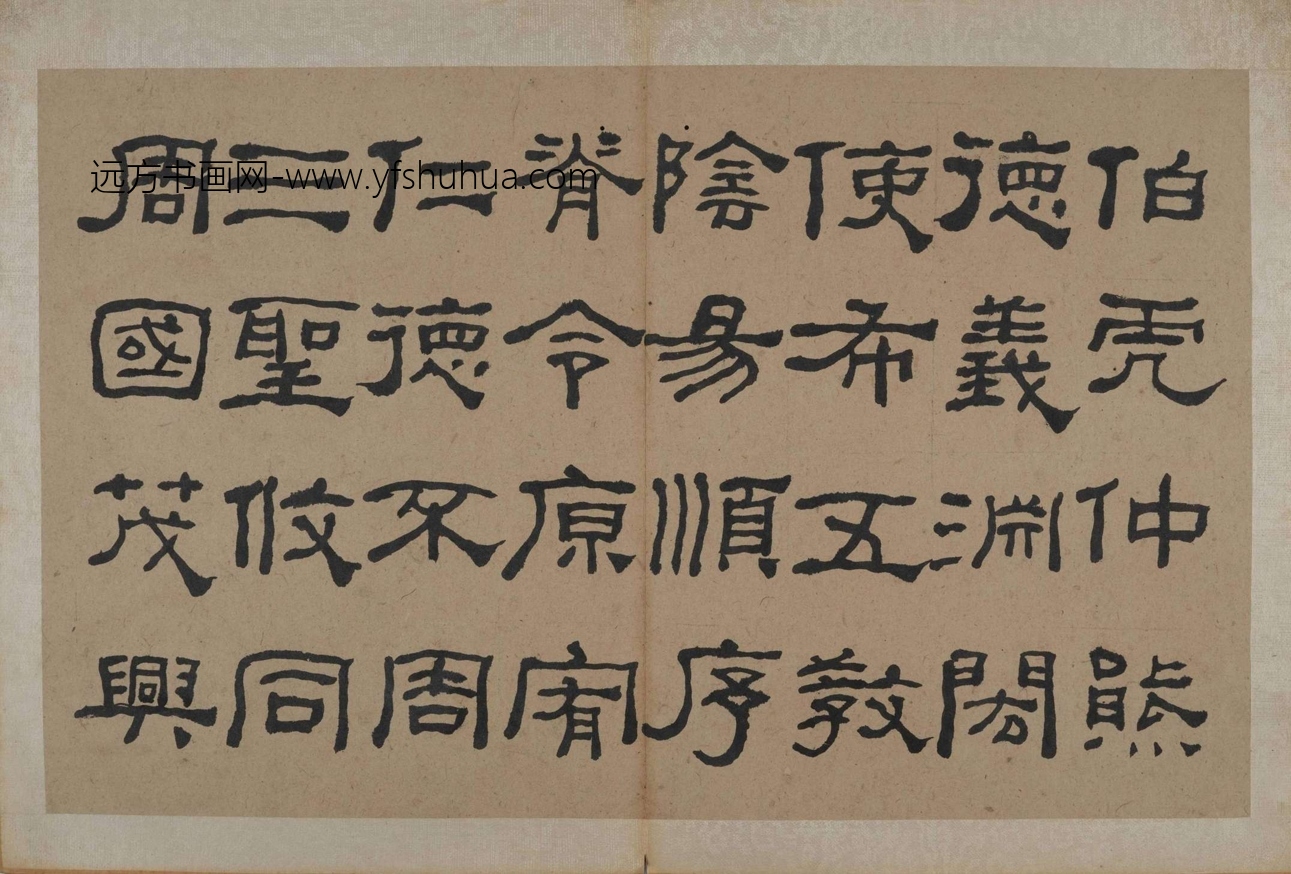 伯虎仲熊
德義淵閎
使布五教
陰昜順序
脊令原宥
仁德不周
三聖攸同
周國茂興
远方书画网-www.yfshuhua.com